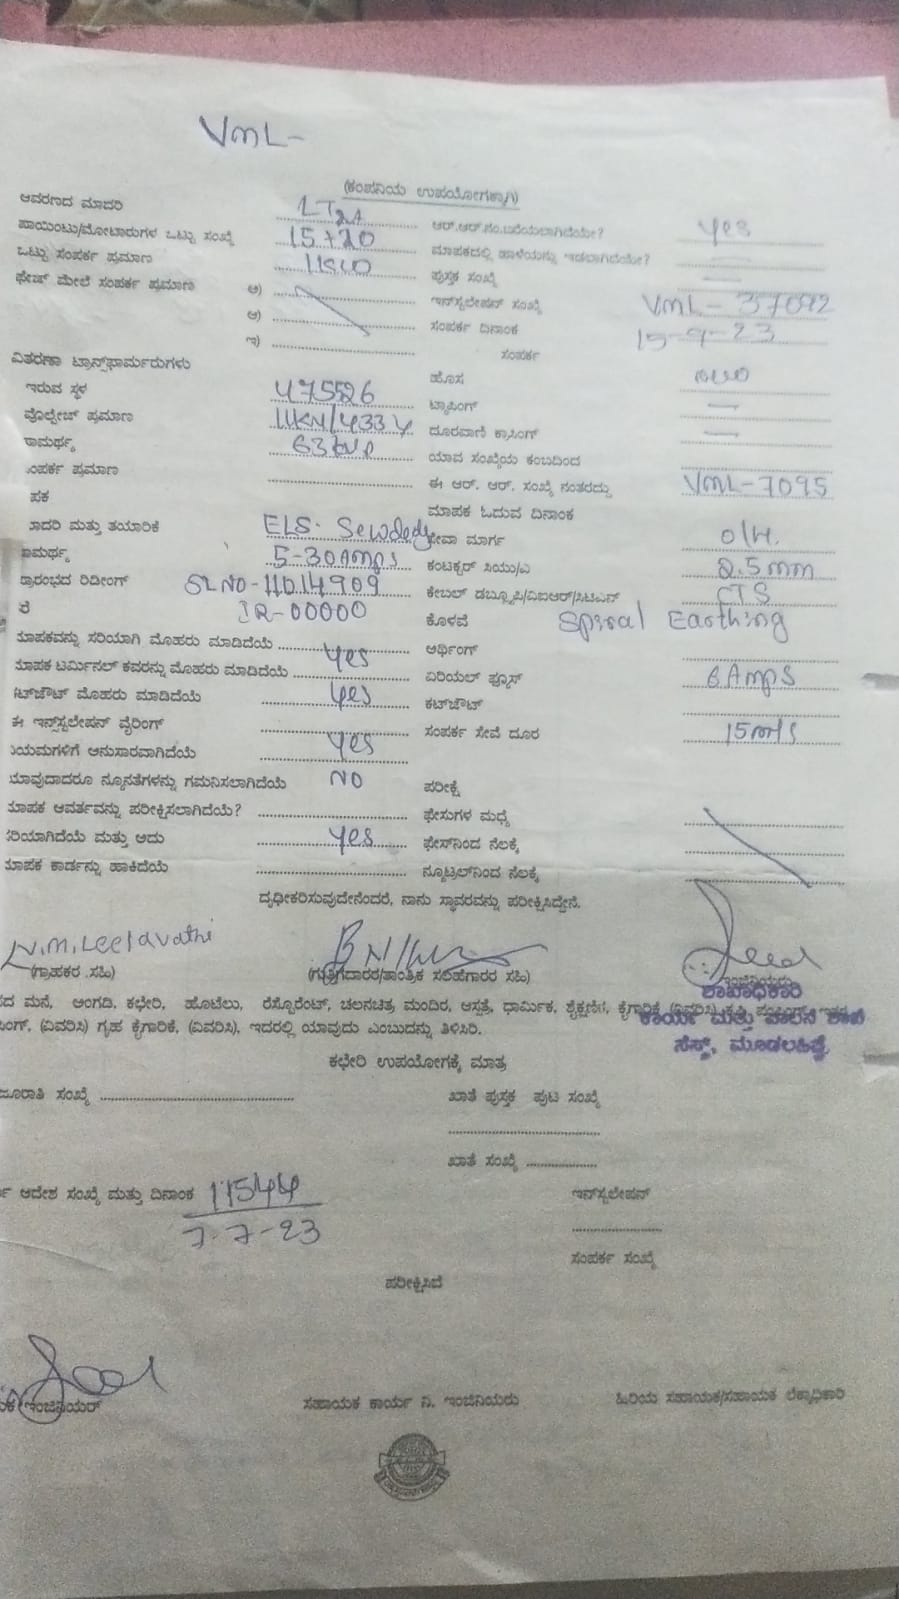 VML-
(ಕಂಪನಿಯ ಉಪಯೋಗಕ್ಕಾಗಿ)
ಆವರಣದ ಮಾದರಿ LT2A ಆರ್.ಆರ್.ನಂ.ಬರೆಯಲಾಗಿದೆಯೇ? Yes
ಪಾಯಿಂಟು/ಮೋಟಾರುಗಳ ಒಟ್ಟು ಸಂಖ್ಯೆ 15+20 ಮಾಪಕದಲ್ಲಿ ಹಾಳೆಯನ್ನು ಇಡಲಾಗಿದೆಯೇ? —
ಒಟ್ಟು ಸಂಪರ್ಕ ಪ್ರಮಾಣ 1KW ಪುಸ್ತಕ ಸಂಖ್ಯೆ —
ಫೇಜ್ ಮೇಲೆ ಸಂಪರ್ಕ ಪ್ರಮಾಣ ಅ) ಇನ್‌ಸ್ಟಲೇಷನ್ ಸಂಖ್ಯೆ VML-37092
ಆ) ಸಂಪರ್ಕ ದಿನಾಂಕ 15-9-23
ಇ) ಸಂಪರ್ಕ
ವಿತರಣಾ ಟ್ರಾನ್ಸ್‌ಫಾರ್ಮರುಗಳು ಹೊಸ
ಇರುವ ಸ್ಥಳ 475526 ಟ್ಯಾಪಿಂಗ್ —
ವೊಲ್ಟೇಜ್ ಪ್ರಮಾಣ 11KV/433V ದೂರವಾಣಿ ಕ್ರಾಸಿಂಗ್ —
ಾಮರ್ಥ್ಯ 63KVA ಯಾವ ಸಂಖ್ಯೆಯ ಕಂಬದಿಂದ
ಸಂಪರ್ಕ ಪ್ರಮಾಣ ಈ ಆರ್. ಆರ್. ಸಂಖ್ಯೆ ನಂತರದ್ದು VML-7095
ಪಕ ಮಾಪಕ ಓದುವ ದಿನಾಂಕ
ಾದರಿ ಮತ್ತು ತಯಾರಿಕೆ ELS. ಸೇವಾ ಮಾರ್ಗ O/H.
ಾಮರ್ಥ್ಯ 5-30Amps ಕಂಟಕ್ಟರ್ ಸಿಯು/ಎ 2.5mm
ಪ್ರಾರಂಭದ ರಿಡೀಂಗ್ SLNO-11014909 ಕೇಬಲ್ ಡಬ್ಲ್ಯೂಪಿ/ವಿಐಆರ್/ಸಿಟಿಎಸ್ CTS
ರೆ IR-00000 ಕೊಳವೆ Spiral Earthing
ಮಾಪಕವನ್ನು ಸರಿಯಾಗಿ ಮೊಹರು ಮಾಡಿದೆಯೆ Yes ಅರ್ಥಿಂಗ್
ಮಾಪಕ ಟರ್ಮಿನಲ್ ಕವರನ್ನು ಮೊಹರು ಮಾಡಿದೆಯೆ ಏರಿಯಲ್ ಫ್ಯೂಸ್ 6 Amps
ಕಟ್‌ಔಟ್ ಮೊಹರು ಮಾಡಿದೆಯೆ Yes ಕಟ್‌ಔಟ್
ಈ ಇನ್‌ಸ್ಟಲೇಷನ್ ವೈರಿಂಗ್ ಸಂಪರ್ಕ ಸೇವೆ ದೂರ 15mts
ನಿಯಮಗಳಿಗೆ ಅನುಸಾರವಾಗಿದೆಯೆ Yes
ಯಾವುದಾದರೂ ನ್ಯೂನತೆಗಳನ್ನು ಗಮನಿಸಲಾಗಿದೆಯೆ NO ಪರೀಕ್ಷೆ
ಮಾಪಕ ಆವರ್ತವನ್ನು ಪರೀಕ್ಷಿಸಲಾಗಿದೆಯೆ? ಫೇಸುಗಳ ಮಧ್ಯೆ
ಸರಿಯಾಗಿದೆಯೆ ಮತ್ತು ಅದು Yes ಫೇಸ್‌ನಿಂದ ನೆಲಕ್ಕೆ
ಮಾಪಕ ಕಾರ್ಡನ್ನು ಹಾಕಿದೆಯೆ ನ್ಯೂಟ್ರಲ್‌ನಿಂದ ನೆಲಕ್ಕೆ
ದೃಢೀಕರಿಸುವುದೇನೆಂದರೆ, ನಾನು ಸ್ಥಾವರವನ್ನು ಪರೀಕ್ಷಿಸಿದ್ದೇನೆ.
N.M.Leelavathi
(ಗ್ರಾಹಕರ ಸಹಿ) (ಗುತ್ತಿಗೆದಾರರ/ತಾಂತ್ರಿಕ ಸಲಹೆಗಾರರ ಸಹಿ) ಇಂಜಿನಿಯರು
ಶಾಖಾಧಿಕಾರಿ
ದ ಮನೆ, ಅಂಗಡಿ, ಕಛೇರಿ, ಹೊಟೆಲು, ರೆಸ್ಟೊರೆಂಟ್, ಚಲನಚಿತ್ರ ಮಂದಿರ, ಆಸ್ಪತ್ರೆ, ಧಾರ್ಮಿಕ, ಶೈಕ್ಷಣಿಕ, ಕೈಗಾರಿಕೆ, (ವಿವರಿಸಿ)
ಕಾರ್ಯ ಮತ್ತು ಪಾಲನ ಶಾಖೆ
ಸಿಂಗ್, (ವಿವರಿಸಿ) ಗೃಹ ಕೈಗಾರಿಕೆ, (ವಿವರಿಸಿ), ಇದರಲ್ಲಿ ಯಾವುದು ಎಂಬುದನ್ನು ತಿಳಿಸಿರಿ.
ಸೆಸ್ಕ್, ಮೂಡಲಹಿಪ್ಪೆ
ಕಛೇರಿ ಉಪಯೋಗಕ್ಕೆ ಮಾತ್ರ
ಜೂರಾತಿ ಸಂಖ್ಯೆ ಖಾತೆ ಪುಸ್ತಕ ಪುಟ ಸಂಖ್ಯೆ
ಖಾತೆ ಸಂಖ್ಯೆ
ಆದೇಶ ಸಂಖ್ಯೆ ಮತ್ತು ದಿನಾಂಕ 11544 ಇನ್‌ಸ್ಟಲೇಷನ್
7-7-23
ಸಂಪರ್ಕ ಸಂಖ್ಯೆ
ಪರೀಕ್ಷಿಸಿದೆ
ಇಂಜಿನಿಯರ್ ಸಹಾಯಕ ಕಾರ್ಯ ನಿ. ಇಂಜಿನಿಯರು ಹಿರಿಯ ಸಹಾಯಕ/ಸಹಾಯಕ ಲೆಕ್ಕಾಧಿಕಾರಿ